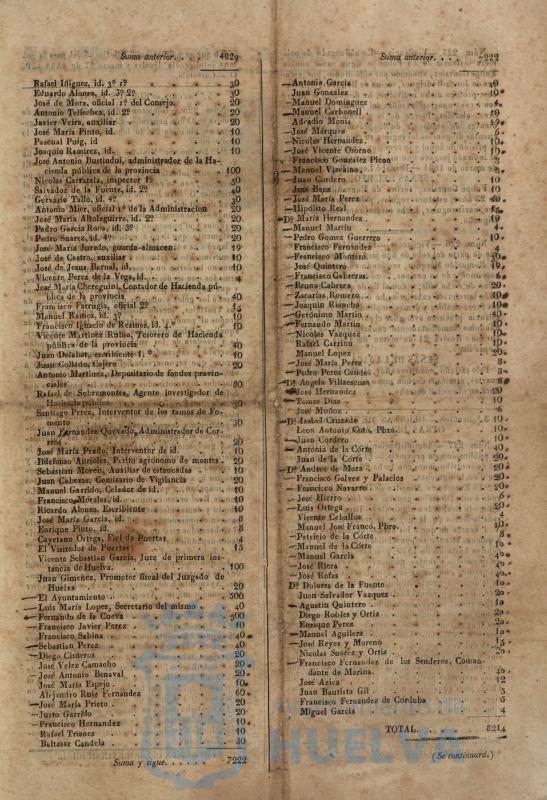 Suma anterior. . . . 4829
Rafael Iñiguez, id. 3º 1º 30
Eduardo Alonso, id. 3º 2º 30
José de Mora, oficial 1º del Consejo. 20
Antonio Tellechea, id. 2º 20
Javier Veira, auxiliar 20
José María Pinto, id. 10
Pascual Puig, id 10
Joaquin Ramirez, id. 10
José Antonio Bustindui, administrador de la Ha-
cienda pública de la provincia 100
Nicolas Carratala, inspector 1º 50
Salvador de la Fuente, id. 2º 40
Gervasio Tallo, id. 4º 30
Antonio Mier, oficial 1º de la Administracion 20
José María Altolaguirre, id. 2º 20
Pedro García Rora, id. 3º 20
Pedro Suarez, id. 4º 20
José María Jurado, guarda-almacen 19
José de Castro, auxiliar 10
José de Jesus Bernal, id. 10
Vicente Perez de la Vega, id. 4
José María Chereguini, Contador de Hacienda pú-
blica de la provincia 40
Francisco Farrugia, oficial 2º 15
Manuel Ramos, id. 3º 10
Francisco Ignacio de Resinas, id. 4.º 10
Vicente Martinez Rubio, Tesorero de Hacienda
pública de la provincia 40
Juan Delabat, escribiente 1.º 10
Juan Collado, Cajero 20
Antonio Martinez, Depositario de fondos provin-
ciales 80
Rafael de Sobremontes, Agente investigador de
Hacienda pública 30
Santiago Perez, Interventor de los ramos de Fo-
mento 30
Juan Fernandez Quevedo, Administrador de Cor-
reos 20
José María Prado, Interventor de id. 10
Ildefonso Aurioles, Perito agrónomo de montes. 20
Sebastian Moreu, Auxiliar de estancadas 10
Juan Cabezas, Comisario de Vigilancia 20
Manuel Garrido, Celador de id. 10
Francisco Morales, id. 10
Ricardo Alonso, Escribiente 10
José María García, id. 8
Enrique Pinto, id. 8
Cayetano Ortega, Fiel de Puertas 4
El Visitador de Puertas 15
Vicente Sebastian García, Juez de primera ins-
tancia de Huelva. 100
Juan Gimenez, Promotor fiscal del Juzgado de
Huelva 20
El Ayuntamiento 500
Luis María Lopez, Secretario del mismo 40
Fernando de la Cueva 500
Francisco Javier Perez 10
Francisco Sabina 40
Sebastian Perez 40
Diego Cisneros 20
José Velez Camacho 20
José Antonio Benaval 20
José María Espejo 10
Alejandro Ruiz Fernandez 60
José María Prieto 20
Justo Garrillo 20
Francisco Hernandez 10
Rafael Trianes 10
Baltasar Candela 30
Suma y sigue. . . . . . 7222
Suma anterior. . . . 7222
Antonio García
Juan Gonzalez 10
Manuel Dominguez 4
Manuel Carbonell
Adradio Monis
José Márquez 6
Nicolas Hernandez 10
José Vicente Osorno 10
Francisco Gonzalez Picon
Manuel Vizcaino 8
Juan Cordero 10
José Baez 10
José María Perez 40
Hipólito Real
Dª María Hernandez 19
Manuel Martin 4
Pedro Gomez Guerrero 10
Francisco Fernandez 4
Francisco Montero
José Quintero 19
Francisco Cabreras
Bruno Cabrera 20
Zacarias Romero 10
Joaquin Riancho 10
Gerónimo Martin 40
Fernando Martin 40
Nicolas Vazquez 10
Rafael Carrion 10
Manuel Lopez 20
José María Perez 8
Pedro Perez Conde 8
Dª Angela Villaescusa 8
José Hernandez
Tomas Diaz 10
José Muñoz 6
Dª Isabel Cruzado 10
Leon Antonio Coto, Pbro. 10
Juan Cordero 10
Antonia de la Córte 40
Juan de la Córte 20
Dª Andrea de Mora 20
Francisco Galvez y Palacios 20
Francisco Navarro 20
José Hierro 6
Luis Ortega 20
Vicente Ceballos 4
Manuel José Franco, Pbro. 30
Patricio de la Córte 8
Manuel de la Córte 10
Manuel García 40
José Riera 40
José Rofas 40
Dª Dolores de la Fuente 10
Juan Salvador Vazquez 20
Agustin Quintero 10
Diego Robles y Ortiz 20
Enrique Perez 20
Manuel Aguilera 10
José Reyes y Moreno 15
Nicolas Suarez y Ortiz 20
Francisco Fernandez de los Senderos, Coman-
dante de Marina. 40
José Azica 12
Juan Bautista Gil 5
Francisco Fernandez de Córdoba 6
Miguel García 4
TOTAL. 8214
(Se continuará.)
HUELVA